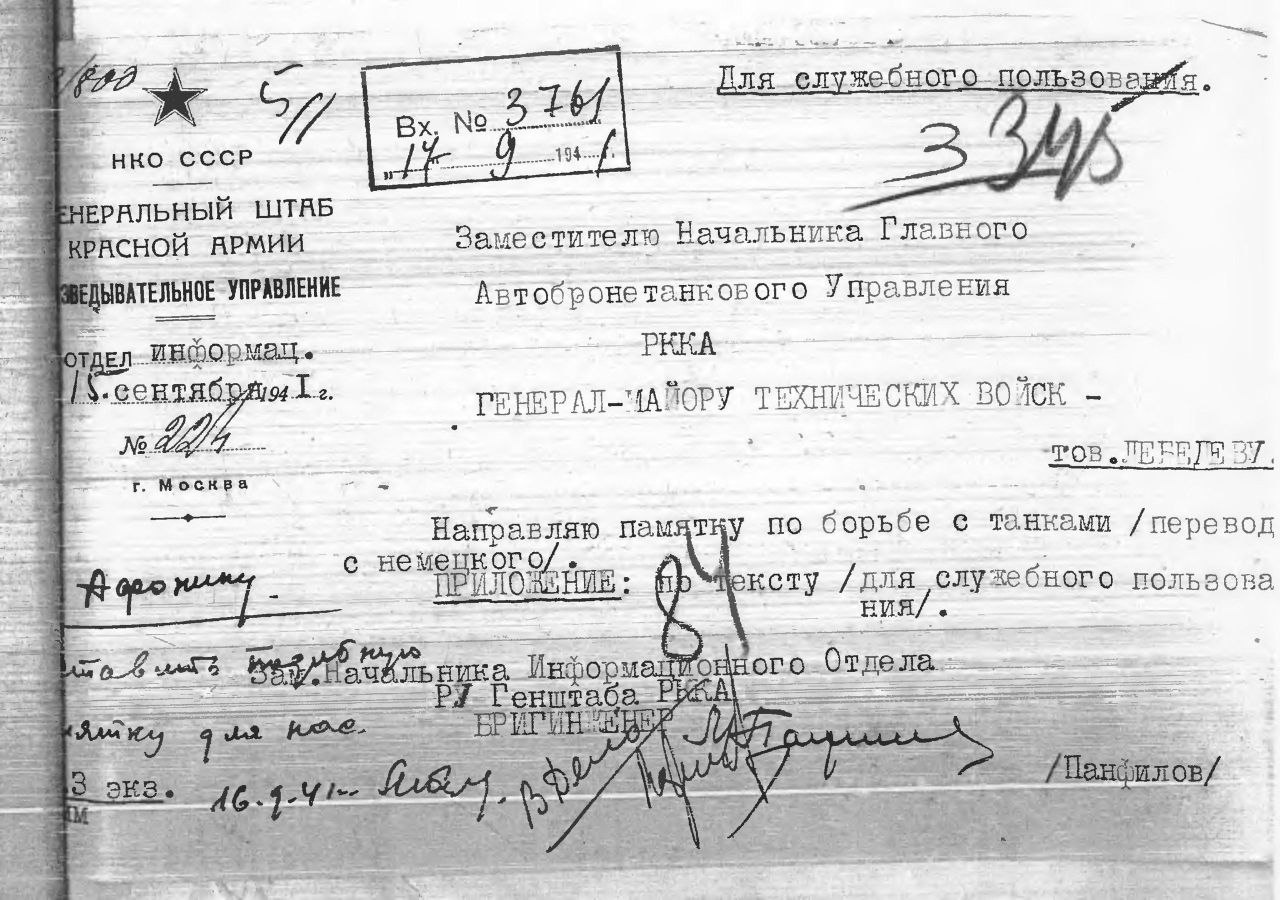 Для служебного пользования.
5/11
Вх. № 3761
"17" 9 1941
НКО СССР
ЕНЕРАЛЬНЫЙ ШТАБ
КРАСНОЙ АРМИИ
ЗВЕДЫВАТЕЛЬНОЕ УПРАВЛЕНИЕ
ОТДЕЛ информац.
15. сентября 1941 г.
№ 224
г. Москва
Заместителю Начальника Главного
Автобронетанкового Управления
РККА
ГЕНЕРАЛ-МАЙОРУ ТЕХНИЧЕСКИХ ВОЙСК -
тов.ЛЕБЕДЕВУ.
Направляю памятку по борьбе с танками /перевод
с немецкого/.
ПРИЛОЖЕНИЕ: по тексту /для служебного пользова
ния/.
84
Афонину.
ставить подобную
мятку для нас.
16.9.41
Зам.Начальника Информационного Отдела
РУ Генштаба РККА
БРИГИНЖЕНЕР
В дело
/Панфилов/
3 экз.